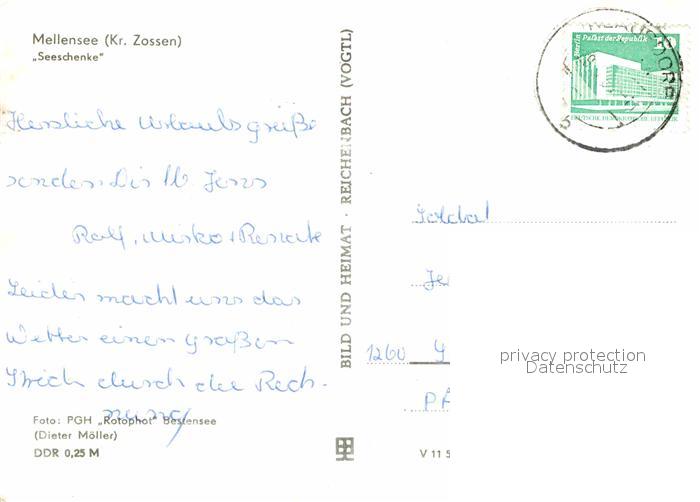 Mellensee (Kr. Zossen)
„Seeschenke"
Herzliche Urlaubsgrüße
senden Dir lb Jens
Ralf, Mirko + Renate
Leider macht uns das
Wetter einen großen
Strich durch die Rech-
nung
Foto: PGH „Rotophot" Bestensee
(Dieter Möller)
DDR 0,25 M
BILD UND HEIMAT · REICHENBACH (VOGTL)
Berlin Palast der Republik
10
DEUTSCHE DEMOKRATISCHE REPUBLIK
Soldat
Je
1260
PA
V 11 5
privacy protection
Datenschutz